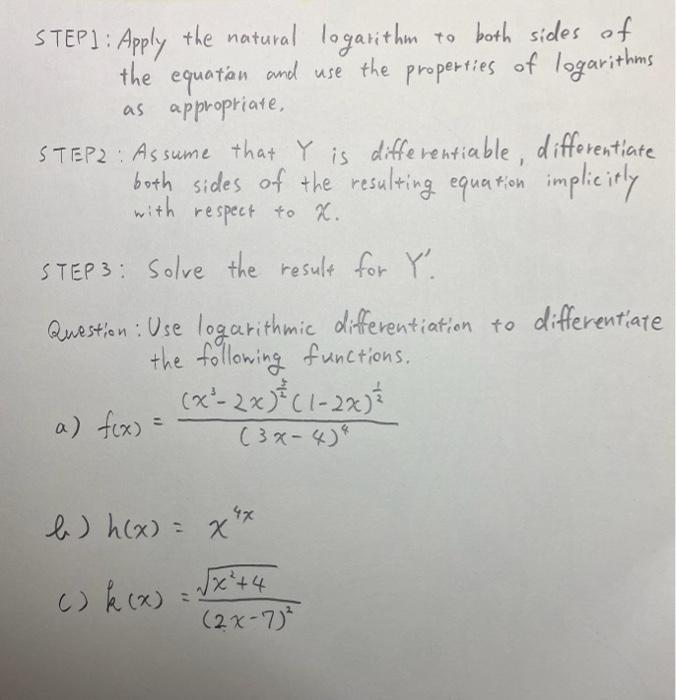 STEP1: Apply the natural logarithm to both sides of
the equation and use the properties of logarithms
as appropriate.
STEP2: Assume that Y is differentiable, differentiate
both sides of the resulting equation implicitly
with respect to x.
STEP3: Solve the result for Y'.
Question: Use logarithmic differentiation to differentiate
the following functions.
a) f(x) = (x³-2x)^(3/2) (1-2x)^(1/2) / (3x-4)⁴
b) h(x) = x^(4x)
c) k(x) = √(x²+4) / (2x-7)²